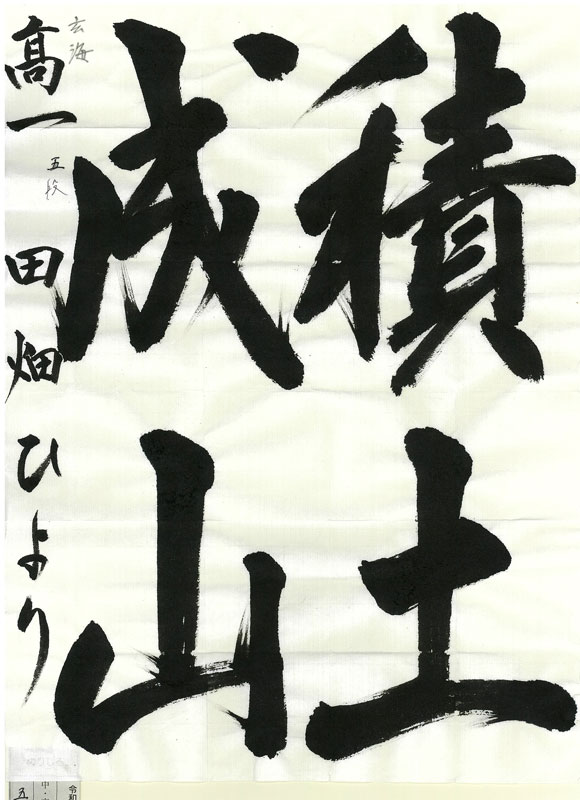 積土
成山
玄海
五段
高一 田畑ひより
令和
中・
五